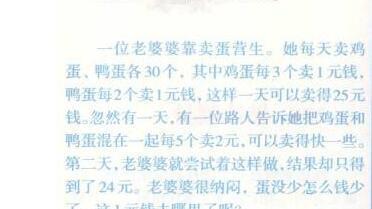 一位老婆婆靠卖蛋营生。她每天卖鸡
蛋、鸭蛋各30个，其中鸡蛋每3个卖1元钱，
鸭蛋每2个卖1元钱，这样一天可以卖得25元
钱。忽然有一天，有一位路人告诉她把鸡蛋和
鸭蛋混在一起每5个卖2元，可以卖得快一些。
第二天，老婆婆就尝试着这样做，结果却只得
到了24元。老婆婆很纳闷，蛋没少怎么钱少
了，这1元钱去哪里了呢？